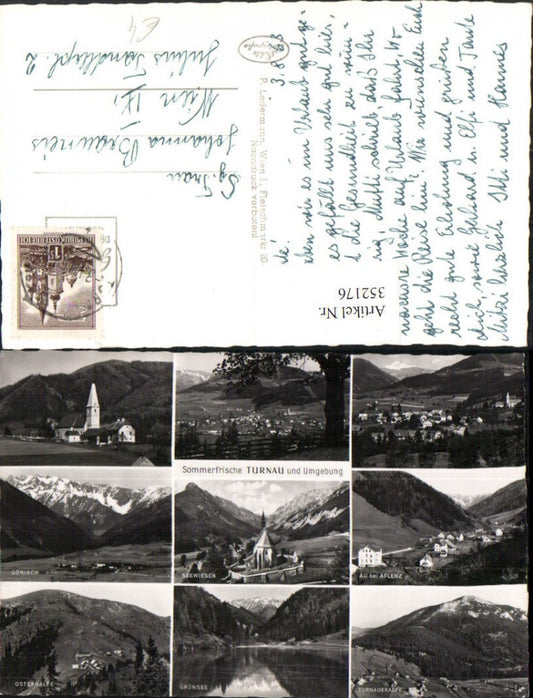 3. 8. 63
wie es im Urlaub geht.
es gefällt uns sehr gut hier,
die Gesundheit zu
Mutti schrieb, daß Ihr
Woche auf Urlaub fahrt. Wo
geht die Reise hin? Wir wünschen Euch
recht gute Erholung und grüßen
Dich, sowie Gerhard u. Elfi und Tante
Mitzi herzlich
und Hannes
Echte
P. Ledermann, Wien I, Fleischmarkt 20
Nachdruck verboten!
Sg. Frau
Johanna Brauneis
Wien IX,
Julius Tandlerpl. 2
€4
REPUBLIK ÖSTERREICH
Artikel Nr.
352176
Sommerfrische TURNAU und Umgebung
GÖRIACH
SEEWIESEN
AU bei AFLENZ
OSTERNALPE
GRÜNSEE
TURNAUERALPE